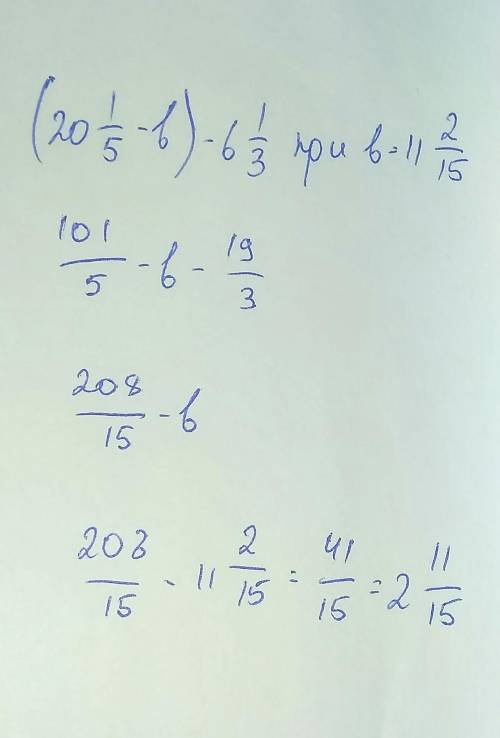 (20 1/5 - в) - 6 1/3 при в = 11 2/15
101/5 - в - 19/3
208/15 - в
208/15 - 11 2/15 = 41/15 = 2 11/15